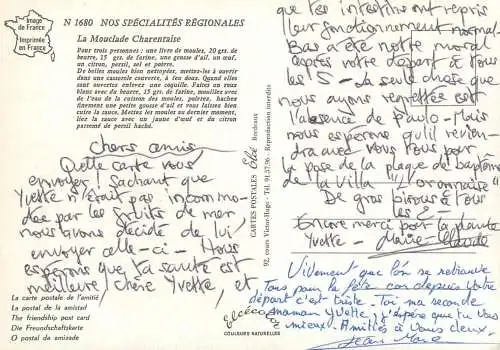 Image
de France
Imprimée
en France
N 1680 NOS SPÉCIALITÉS RÉGIONALES
La Mouclade Charentaise
Pour trois personnes : une livre de moules, 20 grs. de
beurre, 15 grs. de farine, une gousse d'ail, un œuf,
un citron, persil, sel et poivre.
De belles moules bien nettoyées, mettez-les à ouvrir
dans une casserole couverte, à feu doux. Quand elles
sont ouvertes enlevez une coquille. Faites un roux
blanc avec de beurre, 15 grs. de farine, mouillez avec
de l'eau de la cuisson des moules, poivrez, hachez
finement une petite gousse d'ail et vous laissez bien
cuire la sauce. Mettez les moules au dernier moment,
liez la sauce avec un jaune d'œuf et du citron
parsemé de persil haché.
chers amis
Quelle carte vous
envoyer ! Sachant que
Yvette n'était pas incommo-
dée par les fruits de mer
nous avons décidé de lui
envoyer celle-ci - Nous
espérons que ta santé est
meilleure, chère Yvette, et
que les intestins ont repris
leur fonctionnement normal.
Bas a été notre moral
après votre départ à tous
les 5 - La seule chose que
nous ayons regrettée est
l'absence de Paulo - Mais
nous espérons qu'il revien-
dra avec vous tous pour
la pose de la plaque de baptême
de la Villa "L'Oronnaise"
De gros bisous à tous
les
Encore merci pour la plante
Yvette - Marie-Claude
Vivement que l'on se retrouve
tous pour la fête car depuis votre
départ c'est triste. Toi ma seconde
maman Yvette, j'espère que tu vas
mieux. Amitiés à vous deux.
Jean Marc
CARTES POSTALES Elcé Bordeaux
92, cours Victor-Hugo - Tél. 91.37.96 - Reproduction interdite
La carte postale de l'amitié
La postal de la amistad
The friendship post card
Die Freundschaftskarte
O postal da amizade
elcécolor
COULEURS NATURELLES